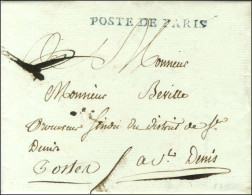 POSTE DE PARIS
Monsieur
Monsieur Beville
Procureur sindic du district de St.
Denis
a St. Denis